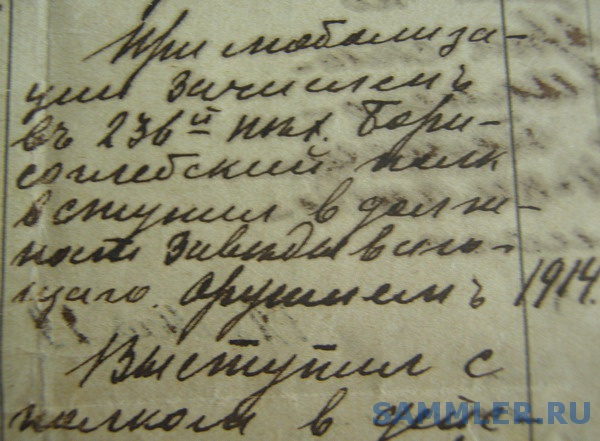 При мобилиза-
ции зачисленъ
въ 236й пѣх. Бори-
соглебский полк
вступил в долж-
ность Заведывающа-
щаго оружиемъ 1914.
Выступил с
полком в дейс-
SAMMLER.RU